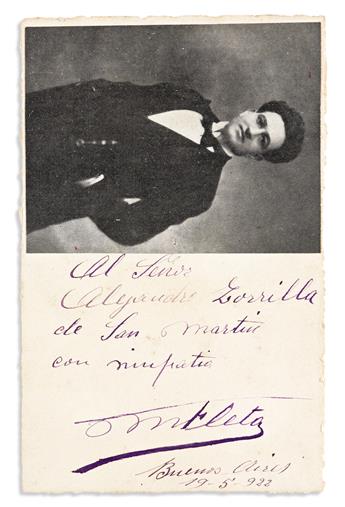 Al Señor
Alejandro Zorrilla
de San Martin
con simpatia
M Fleta
Buenos Aires
19-5-922